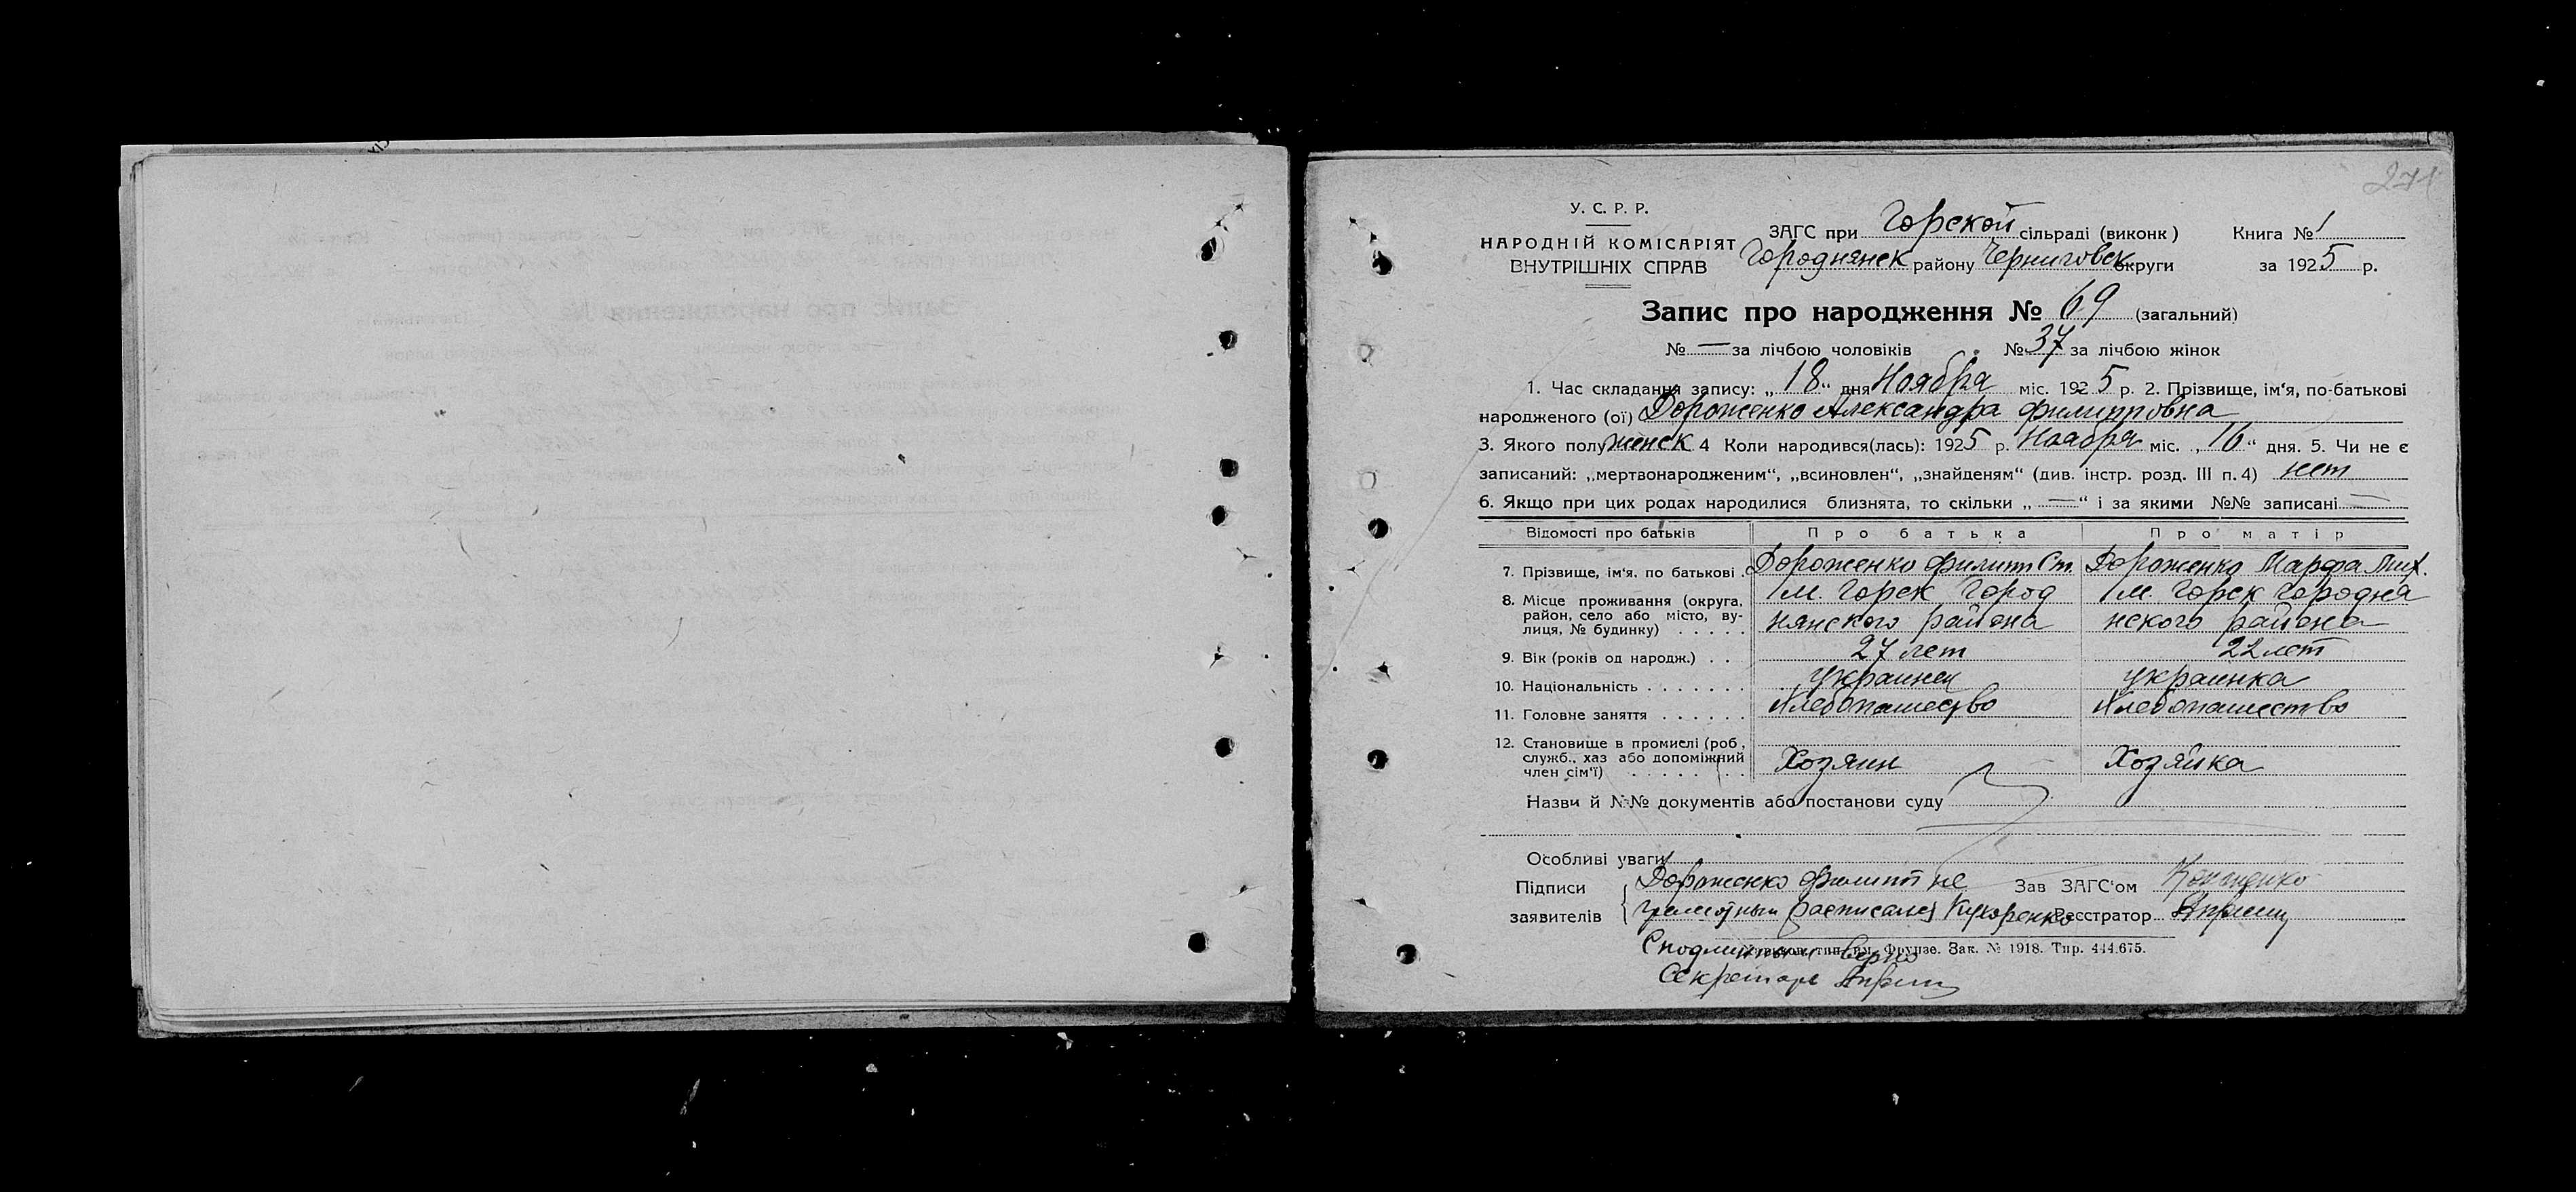 271
У. С. Р. Р.
НАРОДНІЙ КОМІСАРІЯТ
ВНУТРІШНІХ СПРАВ
ЗАГС при Горской сільраді (виконк)
Городнянск району Черниговск округи
Книга № 1
за 1925 р.
Запис про народження № 69 (загальний)
№ — за лічбою чоловіків № 37 за лічбою жінок
1. Час складання запису: „18" дня Ноября міс. 1925 р. 2. Прізвище, ім'я, по-батькові
народженого (ої) Дороженко Александра Филипповна
3. Якого полу женск 4 Коли народився(лась): 1925 р. Ноября міс. „16" дня. 5. Чи не є
записаний: „мертвонародженим", „всиновлен", „знайденям" (див. інстр. розд. III п. 4) нет
6. Якщо при цих родах народилися близнята, то скільки „—" і за якими №№ записані —
Відомості про батьків Про батька Про матір
7. Прізвище, ім'я, по батькові Дороженко Филипп Ст. Дороженко Марфа Мих.
8. Місце проживання (округа, м. Горск Город м. Горск Городня
район, село або місто, ву- нянского района нского района
лиця, № будинку)
9. Вік (років од народж.) 27 лет 22 лет
10. Національність украинец украинка
11. Головне заняття Хлебопашество Хлебопашество
12. Становище в промислі (роб,
служб., хаз або допоміжний Хозяин Хозяйка
член сім'ї)
Назви й №№ документів або постанови суду
Особливі уваги
Підписи Дороженко Филипп не Зав ЗАГС'ом
заявителів грамотный расписался Кухаренко Реєстратор
тип. ім. Фрунзе. Зак. № 1918. Тир. 444.675.
С подлинным верно
Секретарь